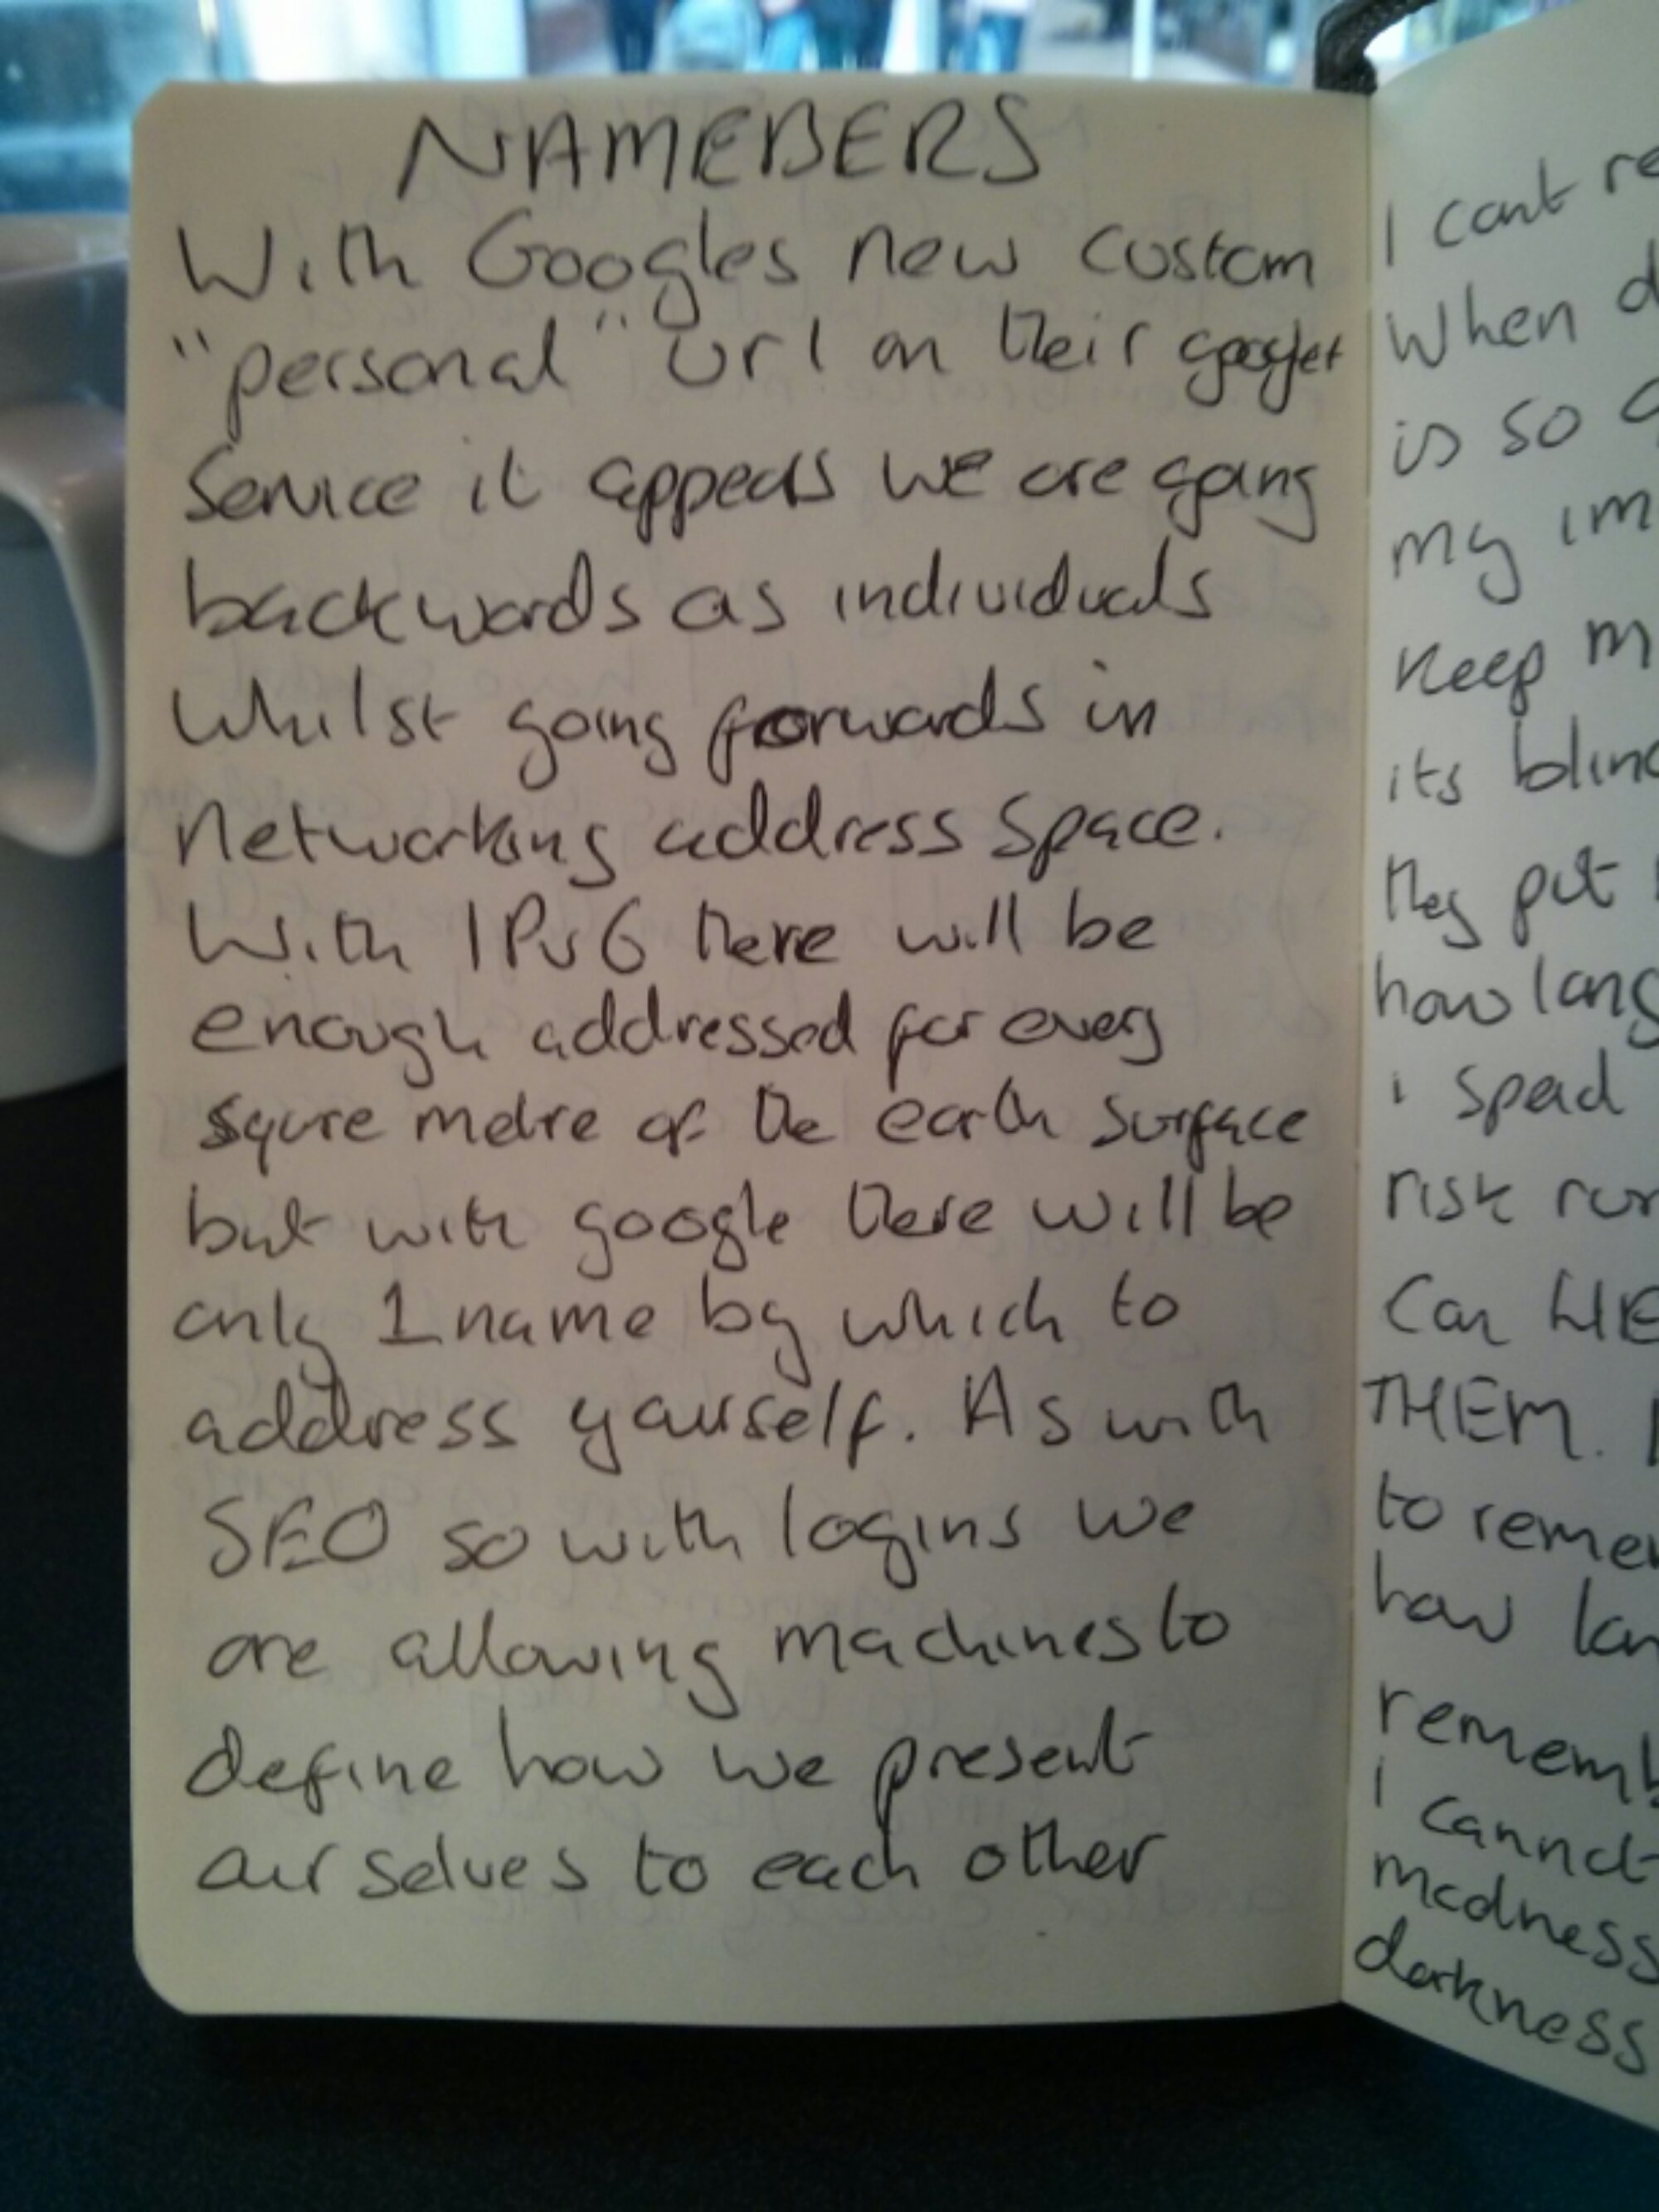 NAMEBERS
With Googles new custom
"personal" url on their
Service it appears we are going
backwards as individuals
whilst going forwards in
networking address space.
With IPv6 there will be
enough addressed for every
squre metre of the earth surface
but with google there will be
only 1 name by which to
address yourself. As with
SEO so with logins we
are allowing machines to
define how we present
ourselves to each other
I cant re
When d
is so
my im
Keep m
its blind
they put
how long
i spend
risk run
Can HE
THEM.
to remem
how lon
rememb
i cannot
madness
darkness